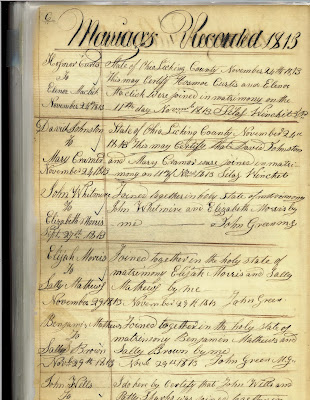 Marriages Recorded 1813
Hosmer Curtis State of Ohio Licking County November 24th 1813
To This may Certify Hosmer Curtis and Elenor
Elenor Maclick Maclick were joined in matrimony on the
November 24th 1813 11th day Novemr 1813 Silas Winchet
David Johnston State of Ohio Licking County November 24th
To 1813 This may Certify that David Johnston
Mary Cramer and Mary Cramer were joined in matri-
November 24 1813 mony on 11th of Nov 1813 Silas Winchet
John Whitmore Joined together in holy state of matrimony
To John Whitmore and Elizabeth Morris by
Elizabeth Morris me John Green
Sept. 29th 1813
Elijah Morris Joined together in the holy state of
To matrimony Elijah Morris and Sally
Sally Mathews Mathews by me
November 29 1813 November 29th 1813 John Green
Benjamin Mathews Joined together in the holy state of
To matrimony Benjamin Mathews and
Sally Brown Sally Brown by me
Novbr 29th 1813 Novbr 29th 1813 John Green M.G.
John Wills I do here by Certify that John Wills and